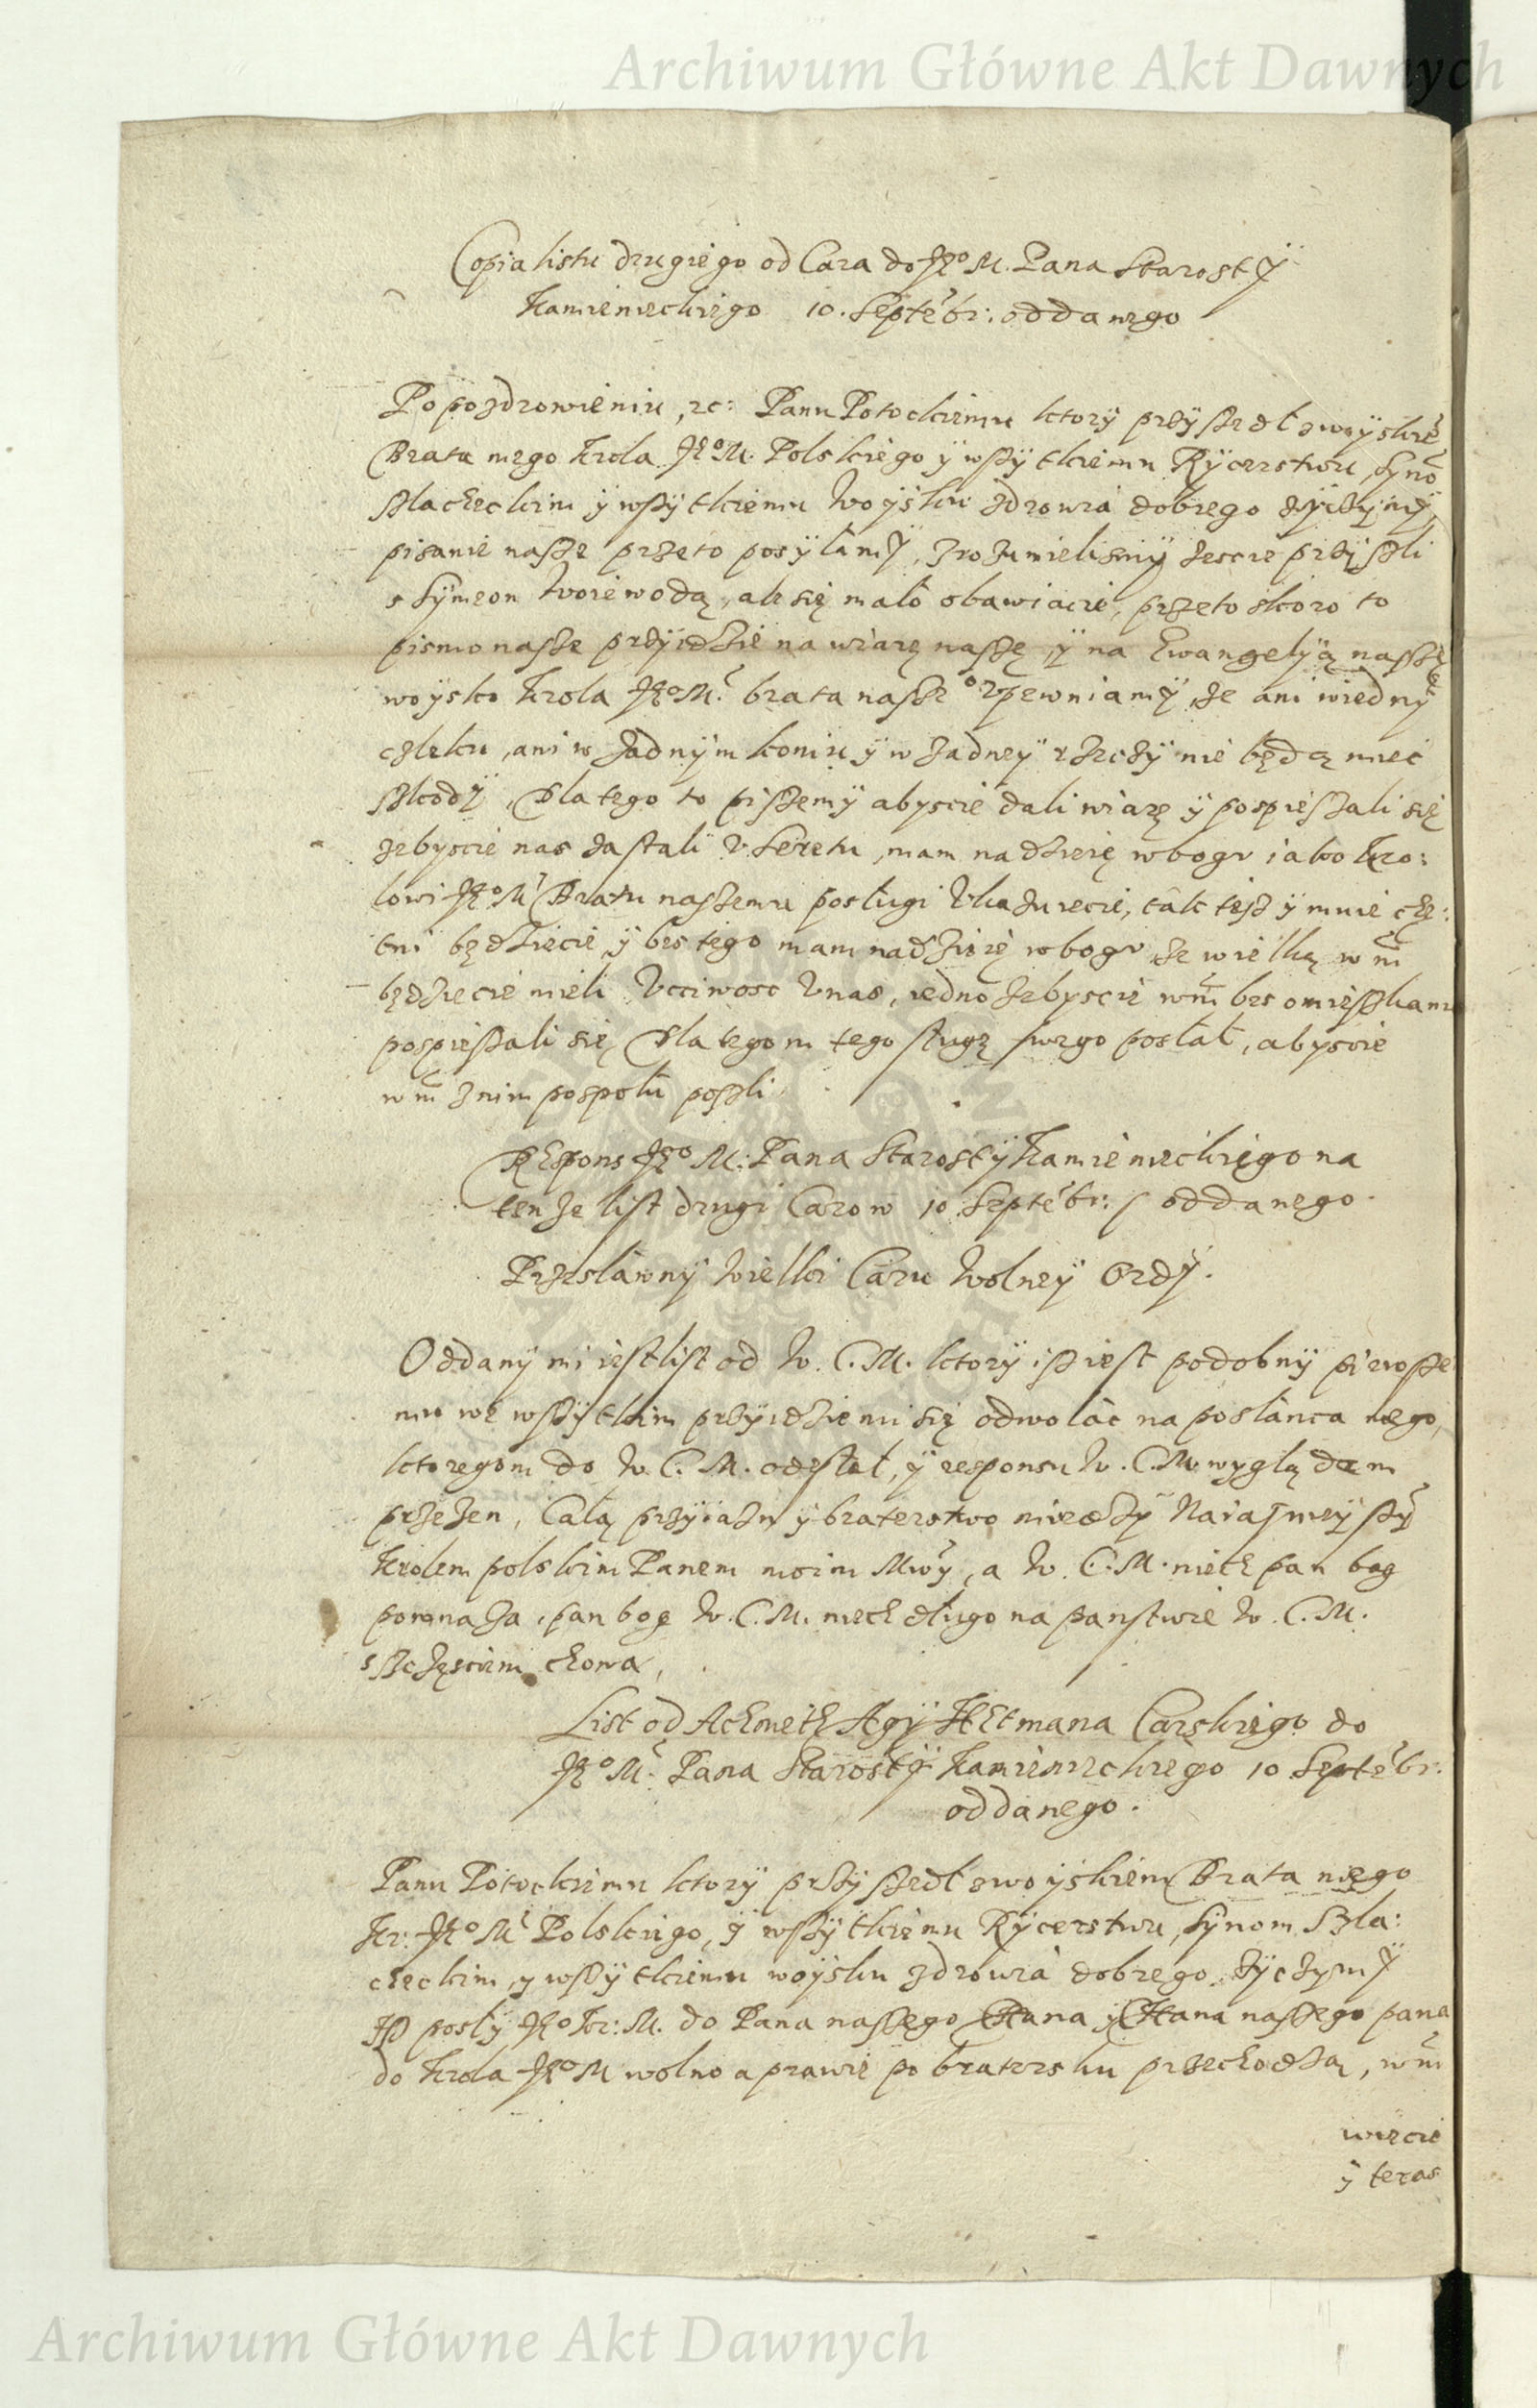 Archiwum Główne Akt Dawnych
Copia listu drugiego od Cara do Je° M. Pana Starosty
Kamienieckiego 10. Septēbr: oddanego
Po pozdrowieniu, rc: Panu Potockiemu ktory przyszedł z woyskiē
Brata mego Krola Je° M. Polskiego ÿ wszytkiemu Rÿcerstwu, Synō
szlacheckim ÿ wszÿtkiemu woÿsku zdrowia dobrego zÿczÿmÿ,
pisanie nasze przeto posÿlamÿ, zrozumielismÿ zescie przÿszli
s Sÿmeon Woiewodą, ale się mało obawiacie, przeto skoro to
pismo nasze przÿidzie na wiarę naszę, ÿ na Ewangelÿą naszę
woÿsko Krola Je° M. brata nasze° vpewniamÿ, ze ani wiednÿm
człeku, ani w zadnÿm koniu ÿ w zadneÿ rzeczÿ nie będą miec
szkodÿ, Dla tego to piszemÿ abyscie dali wiarę ÿ pospieszali się
zebyscie nas zastali v Seretu, mam nadzieię w bogu iako Kro:
lowi Je° M Bratu naszemu posługi vkazuiecie, tak tesz ÿ mnie chę:
tni będziecie ÿ bes tego mam nadzieię w bogu ze wielką wm̄
będziecie mieli vcciwosc v nas, iedno zebyscie wm̄ bes omieszkania
pospieszali się, Dla tegom tego sługę swego posłał, abyscie
wm̄ z nim pospołu poszli
Respons Je° M: Pana Starostÿ Kamienieckiego na
tenze list drugi Carow 10 Septēbr: oddanego.
Przesławnÿ wielki Caru wolneÿ Ordÿ.
Oddanÿ mi iest list od W. C. M. ktorÿ isz iest podobnÿ pierwsze
mu we wszÿtkim przÿidzie mi się odwołac na posłanca mego,
ktoregom do W. C. M. odesłał, ÿ responsu W. C. M. wyglądam
przezen, Całą przÿiazn ÿ braterstwo miedzÿ Naiasnieÿszÿm
Krolem polskim Panem moim Mwÿ, a W. C. M. niech pan bog
pomnaza, pan bog W. C. M. niech długo na panstwie W. C. M.
s szczęsciem chowa,
List od Achmeth Agÿ Hetmana Carskiego do
Je° M. Pana Starostÿ Kamienieckiego 10 Septēbr:
oddanego.
Panu Potockiemu ktorÿ przÿszedł z woÿskiem Brata mego
Kr: Je° M Polskiego, ÿ wszÿtkiemu Rÿcerstwu, Sÿnom Szla:
checkim, y wszÿtkiemu woÿsku zdrowia dobrego zÿczymÿ
Isz posłÿ Je° Kr: M. do Pana naszego Hana ÿ Hana naszego pana
do Krola Je° M wolno a prawie po bratersku przechodzą, wm̄
wiecie
ÿ teras
Archiwum Główne Akt Dawnych